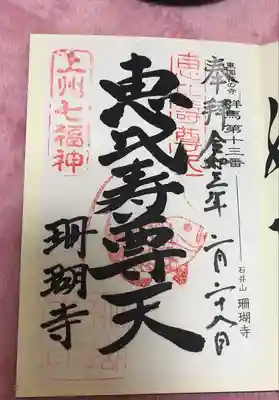 東国花の寺
群馬 第十三番
奉拝 令和三年 二月二十八日
石井山 珊瑚寺
恵比寿尊天
上州七福神
珊瑚寺